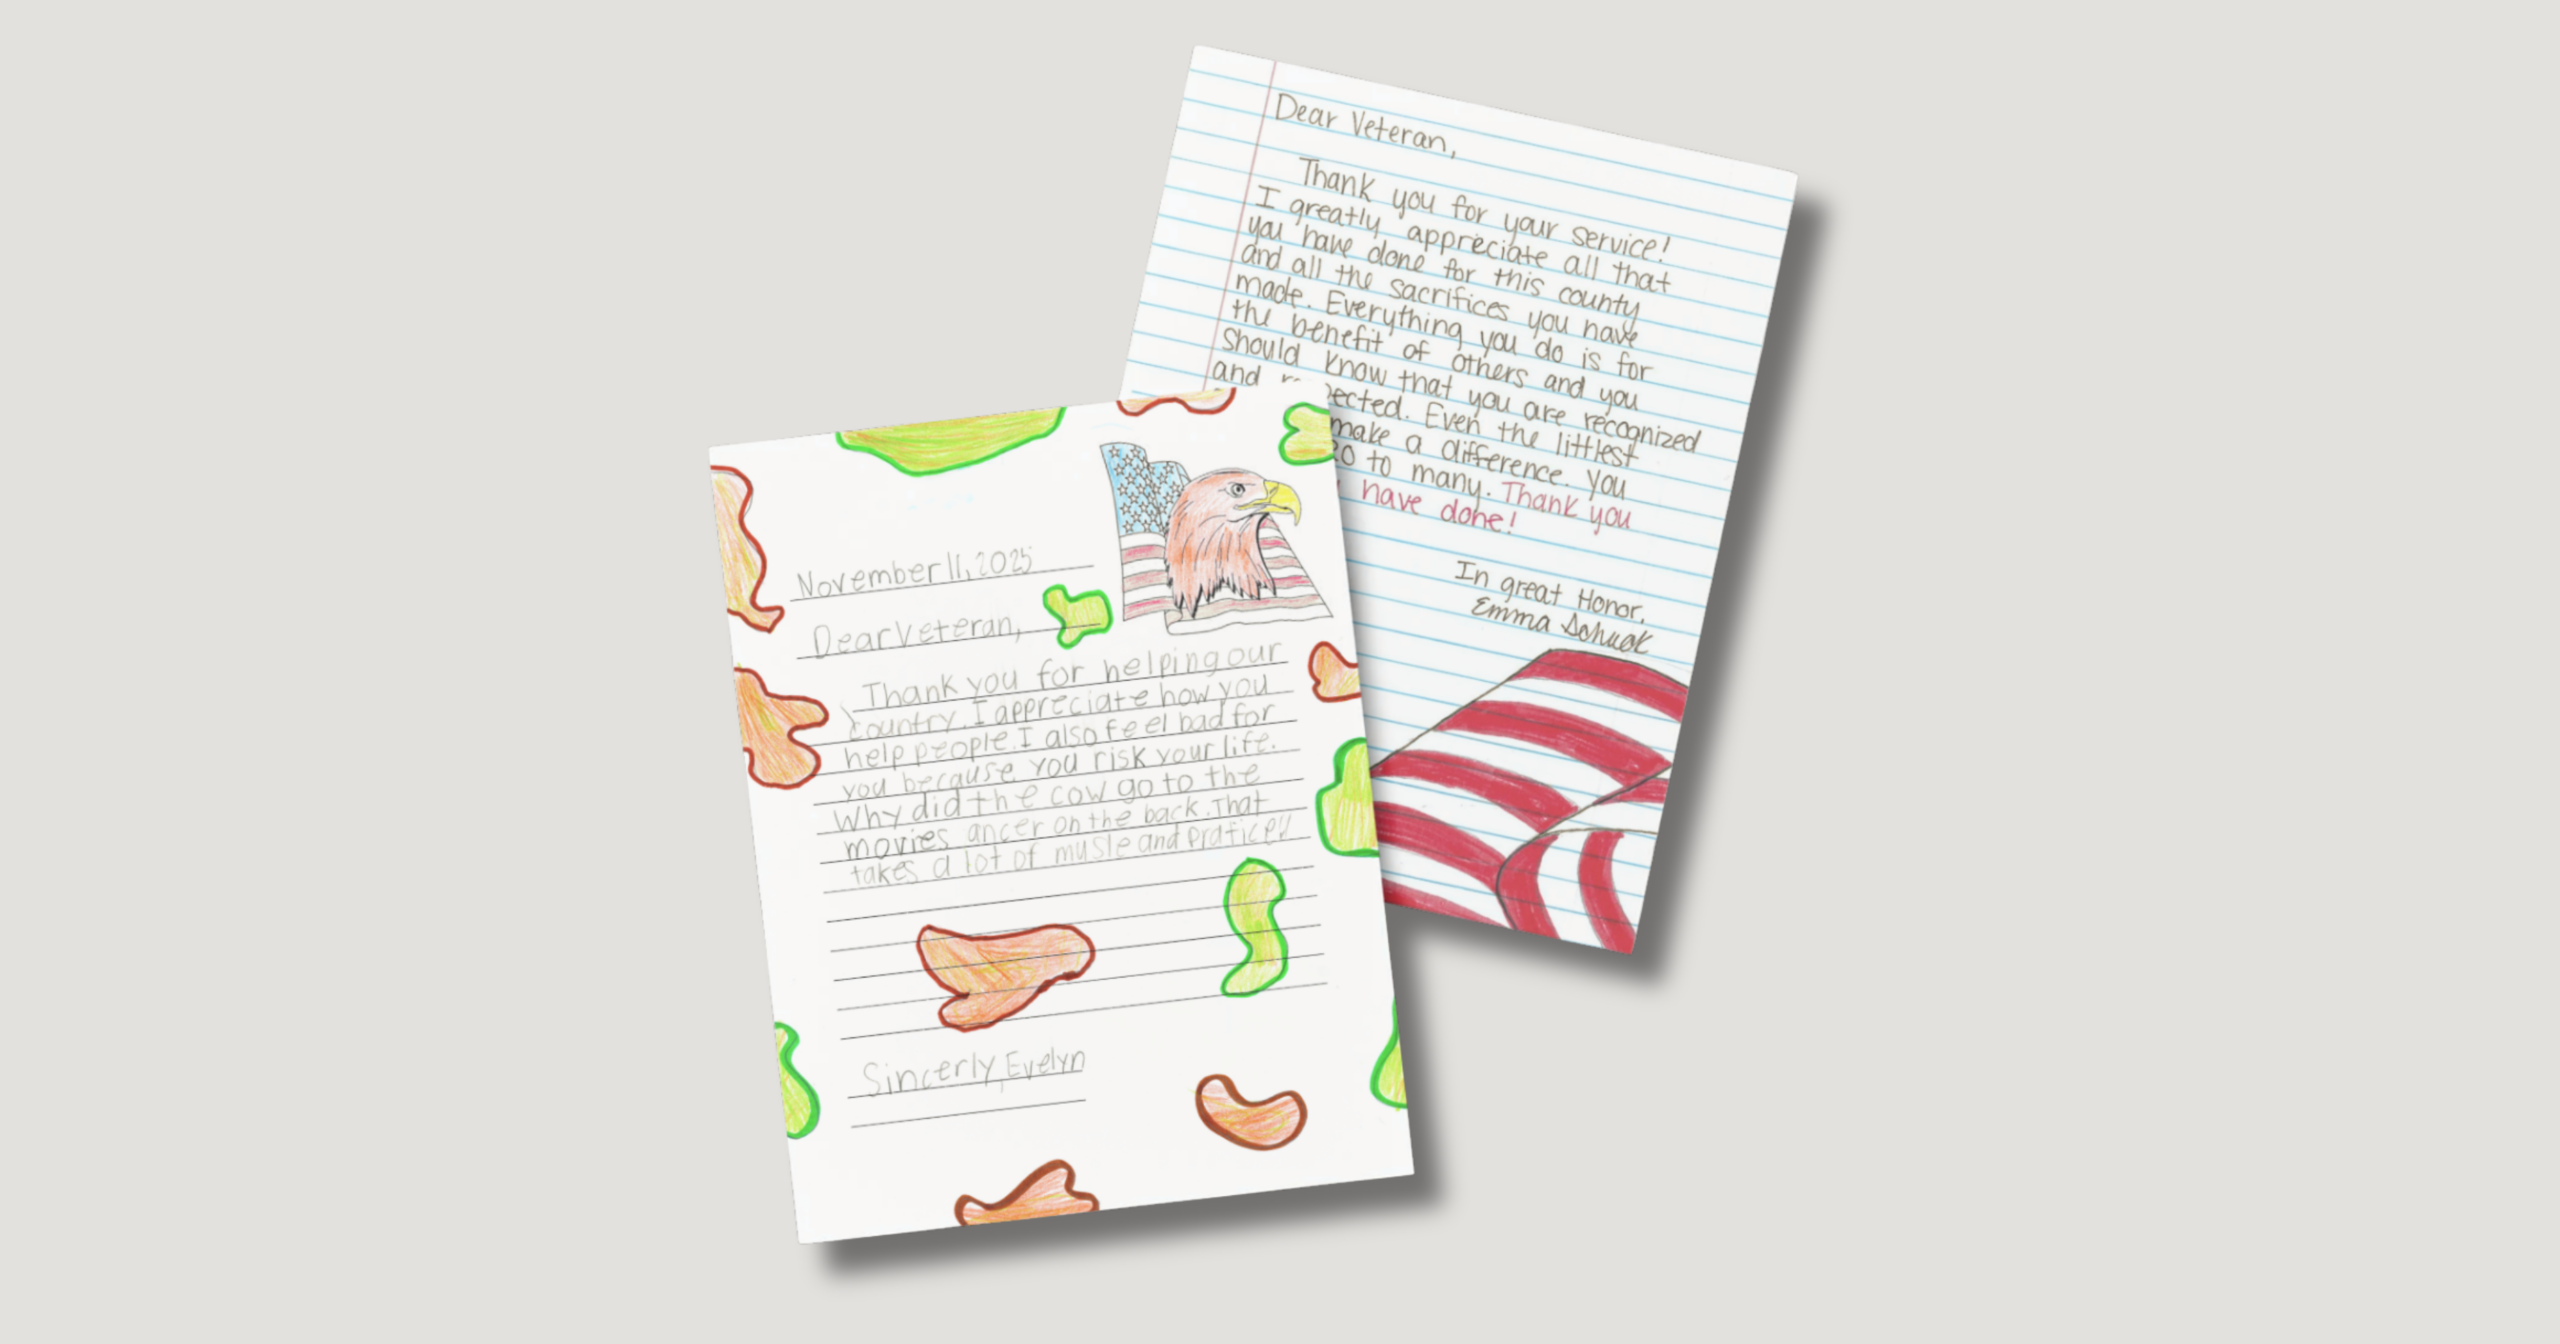 Dear Veteran,
Thank you for your service!
I greatly appreciate all that
you have done for this county
and all the sacrifices you have
made. Everything you do is for
the benefit of others and you
should know that you are recognized
and
Even the littlest
make a difference. You
to many. Thank you
have done!
In great Honor,
Emma
November 11, 2025
Dear Veteran,
Thank you for helping our
country. I appreciate how you
help people. I also feel bad for
you because you risk your life.
Why did the cow go to the
movies ancer on the back. That
takes a lot of musle and pratice!!
Sincerly, Evelyn